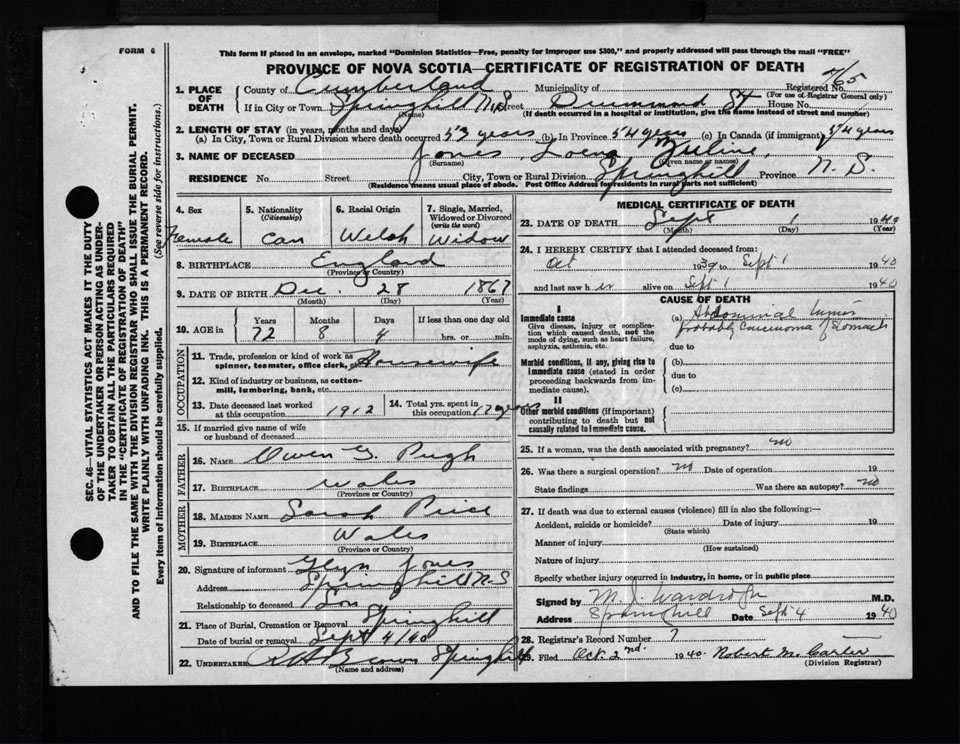 FORM 6
This form if placed in an envelope, marked "Dominion Statistics—Free, penalty for improper use $300," and properly addressed will pass through the mail "FREE"
PROVINCE OF NOVA SCOTIA—CERTIFICATE OF REGISTRATION OF DEATH
Registered No. 765
(For use of Registrar General only)
1. PLACE OF DEATH
County of Cumberland Municipality of
If in City or Town Springhill N.S. Street Drummond St House No.
(Name) (If death occurred in a hospital or institution, give the name instead of street and number)
2. LENGTH OF STAY (in years, months and days)
(a) In City, Town or Rural Division where death occurred 53 years (b) In Province 54 years (c) In Canada (if immigrant) 54 years
3. NAME OF DECEASED Jones,
(Surname) (Given name or names)
RESIDENCE No. Street City, Town or Rural Division Springhill Province N. S.
(Residence means usual place of abode. Post Office Address for residents in rural parts not sufficient)
4. Sex
Female
5. Nationality
(Citizenship)
Can
6. Racial Origin
Welsh
7. Single, Married, Widowed or Divorced
(write the word)
Widow
8. BIRTHPLACE England
(Province or Country)
9. DATE OF BIRTH Dec. 28 1867
(Month) (Day) (Year)
10. AGE in
Years Months Days If less than one day old
72 8 4 hrs. or min.
OCCUPATION
11. Trade, profession or kind of work as spinner, teamster, office clerk, etc. Housewife
12. Kind of industry or business, as cotton-mill, lumbering, bank, etc.
13. Date deceased last worked at this occupation 1912
14. Total yrs. spent in this occupation 17 years
15. If married give name of wife or husband of deceased
FATHER
16. NAME Owen G. Pugh
17. BIRTHPLACE Wales
(Province or Country)
MOTHER
18. MAIDEN NAME Sarah Price
19. BIRTHPLACE Wales
(Province or Country)
20. Signature of informant Glyn Jones
Address Springhill N.S
Relationship to deceased Son
21. Place of Burial, Cremation or Removal Springhill
Date of burial or removal Sept 4/40
22. UNDERTAKER Brown Springhill
(Name and address)
MEDICAL CERTIFICATE OF DEATH
23. DATE OF DEATH Sept 1 1940
(Month) (Day) (Year)
24. I HEREBY CERTIFY that I attended deceased from:
Oct 1939 to Sept 1 1940
and last saw h er alive on Sept 1 1940
CAUSE OF DEATH
I
Immediate cause
Give disease, injury or complication which caused death, not the mode of dying, such as heart failure, asphyxia, asthenia, etc.
(a) Abdominal tumor
probably Carcinoma of Stomach
due to
Morbid conditions, if any, giving rise to immediate cause (stated in order proceeding backwards from immediate cause).
(b)
due to
(c)
II
Other morbid conditions (if important) contributing to death but not causally related to immediate cause.
25. If a woman, was the death associated with pregnancy? no
26. Was there a surgical operation? no Date of operation 19
State findings Was there an autopsy? no
27. If death was due to external causes (violence) fill in also the following:—
Accident, suicide or homicide? Date of injury 19
(State which)
Manner of injury
(How sustained)
Nature of injury
Specify whether injury occurred in industry, in home, or in public place
Signed by M. J. Wardrope M.D.
Address Springhill Date Sept 4 1940
28. Registrar's Record Number 7
29. Filed Oct. 2nd. 1940. Robert M. Carter
(Division Registrar)
SEC. 46—VITAL STATISTICS ACT MAKES IT THE DUTY
OF THE UNDERTAKER OR PERSON ACTING AS UNDER-
TAKER TO OBTAIN ALL THE PARTICULARS REQUIRED
IN THE "CERTIFICATE OF REGISTRATION OF DEATH"
AND TO FILE THE SAME WITH THE DIVISION REGISTRAR WHO SHALL ISSUE THE BURIAL PERMIT.
WRITE PLAINLY WITH UNFADING INK. THIS IS A PERMANENT RECORD.
Every item of Information should be carefully supplied. (See reverse side for instructions.)